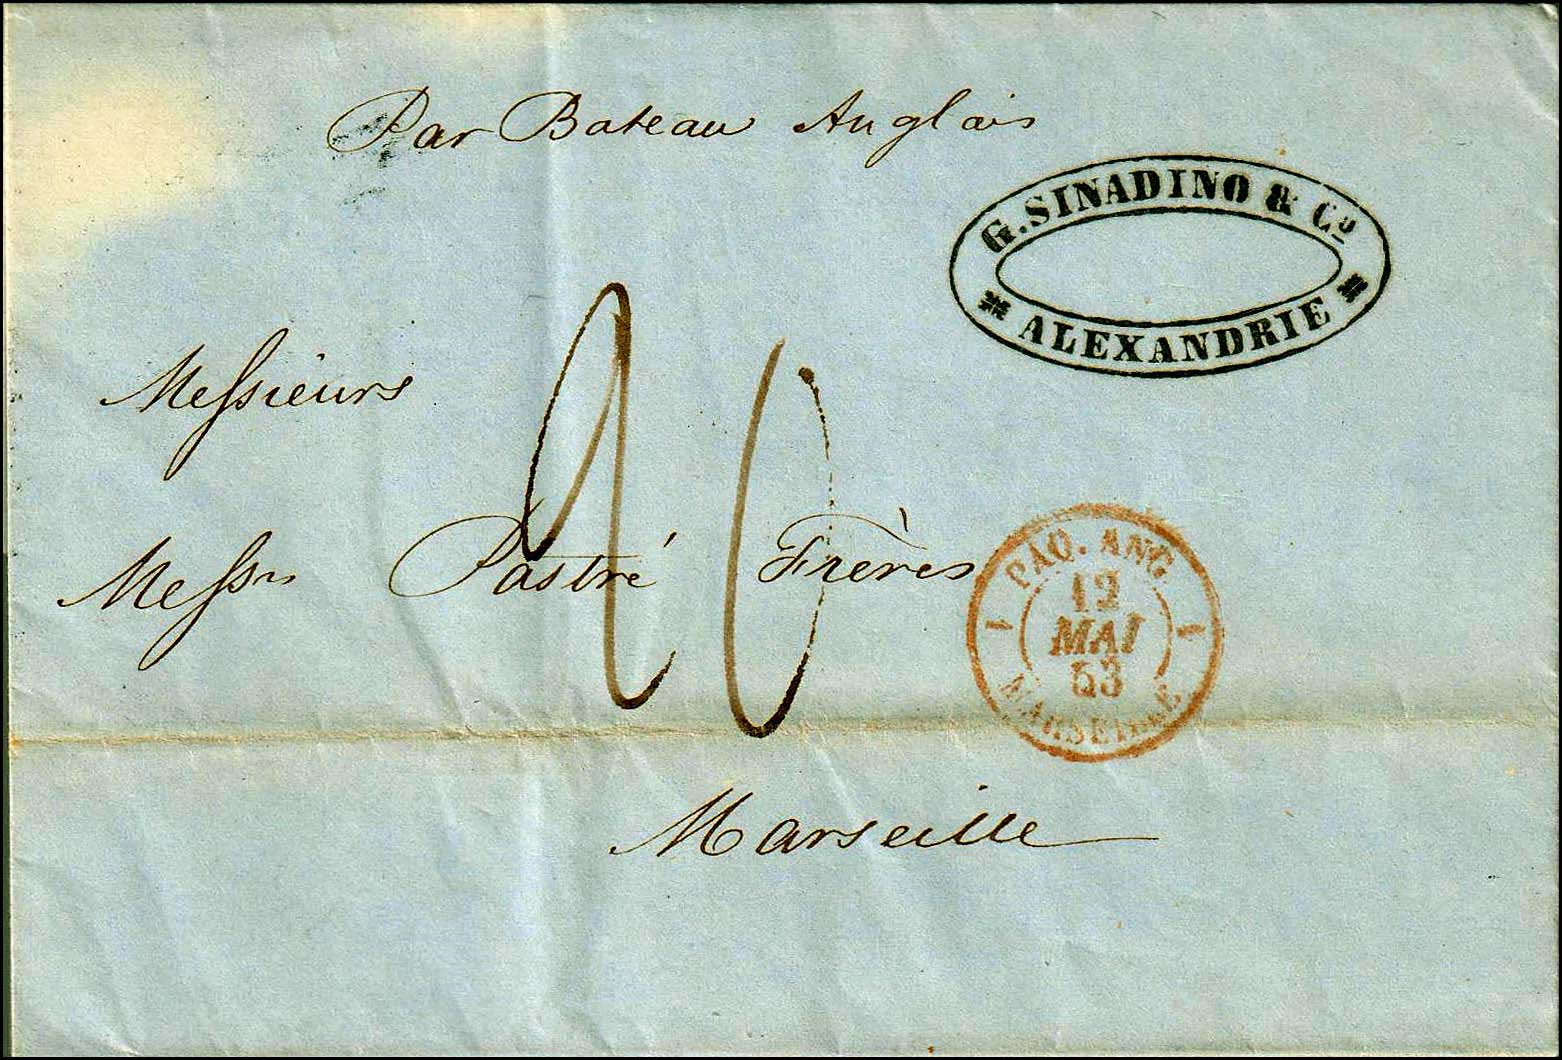 Par Bateau Anglais
G. SINADINO & Cº
* ALEXANDRIE *
Messieurs
20
Messrs Pastré Frères
1 PAQ. ANG. 1
12
MAI
53
MARSEILLE
Marseille